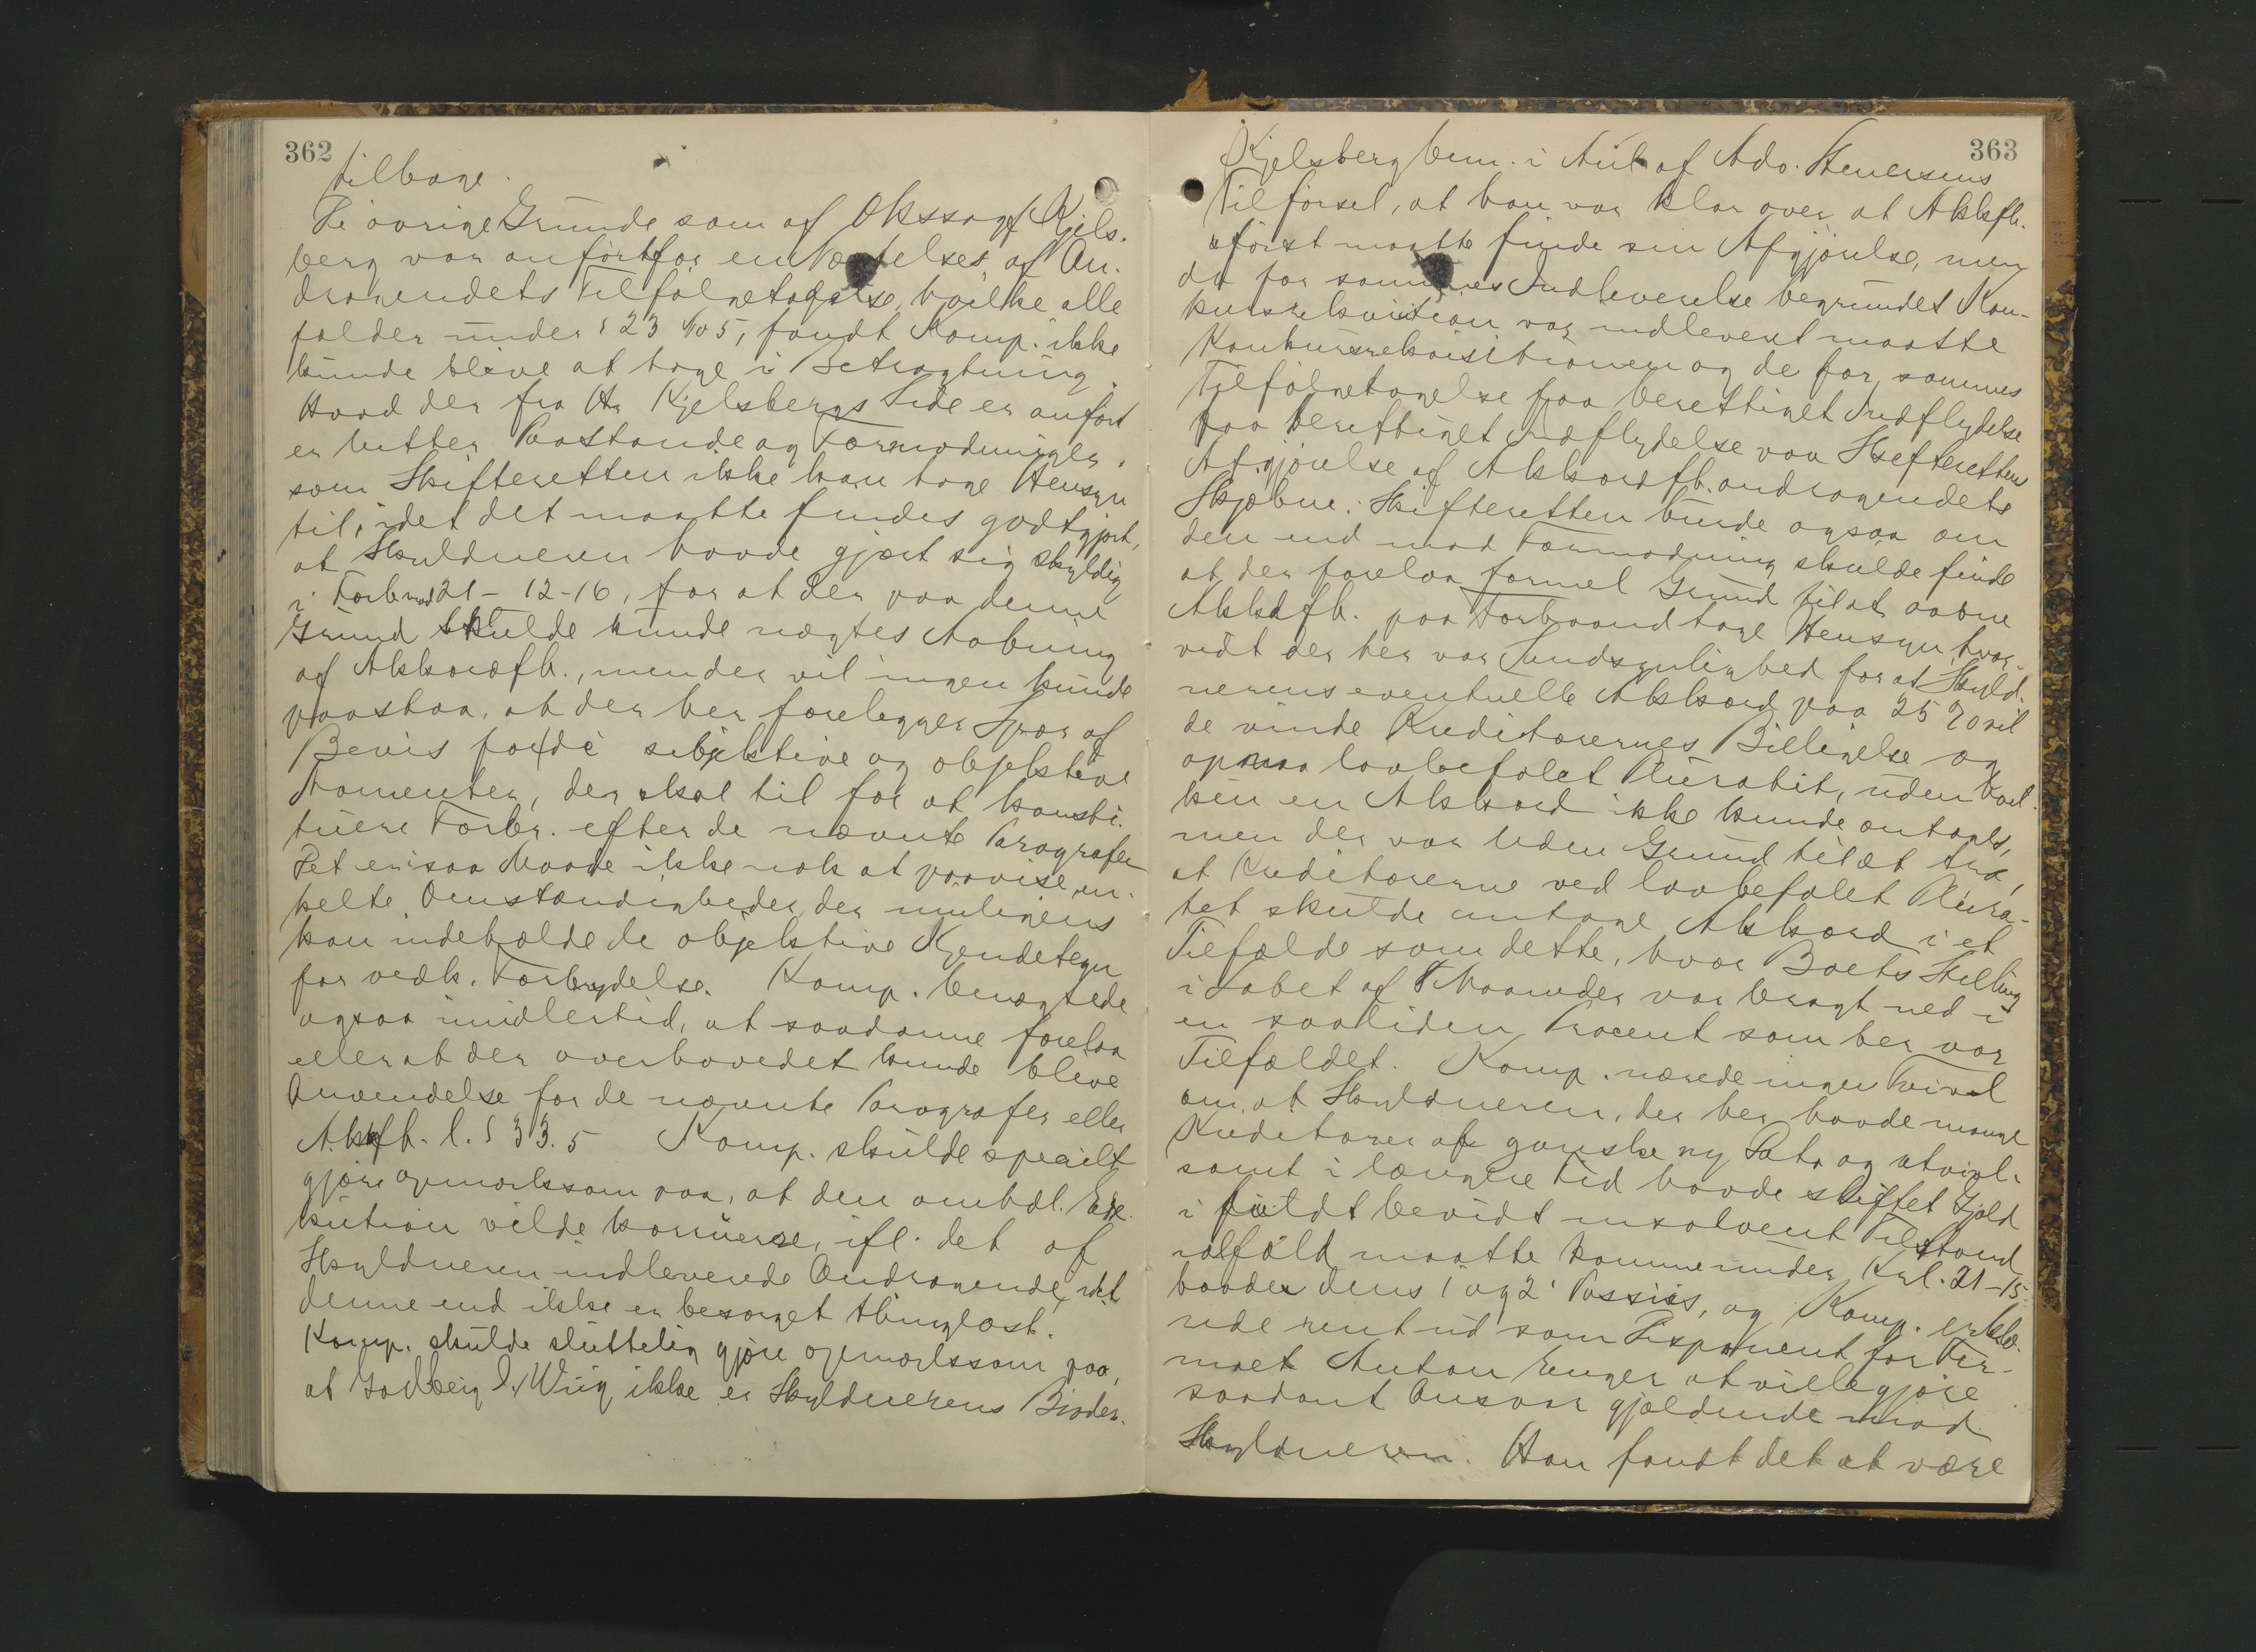 362
tilbage.
De øvrige Grunde som af Okssagf Kjels-
berg var anført for en Nægtelses af An-
dragendets Tilfølgetagelse, hvilke alle
falder under § 23 No 5, fandt Komp. ikke
kunde blive at tage i Betragtning.
Hvad der fra Hr Kjelsbergs Side er anført
er lutter Paastande og Formodninger,
som Skifteretten ikke kan tage Hensyn
til, idet det maatte findes godtgjort,
at Skyldneren havde gjort sig skyldig
i Forb mod 21 - 12-16, for at der paa denne
Grund skulde kunde nægtes Aabning
af Akkordfh., men der vil ingen kunde
paastaa, at der her forelegger Spor af
Bevis for de subjektive og objektive
Momenter, der skal til for at konsti-
tuere Forbr. efter de nævnte Paragrafer
Det er i saa Maade ikke nok at paavise en-
kelte Omstændigheder, der muligens
kan indeholde de objektive Kjendetegn
for vedk. Forbrydelse. Komp. benægtede
ogsaa imidlertid, at saadanne forelaa
eller at der overhovedet kunde blive
Anvendelse for de nævnte Paragrafer eller
Akkfh. l. § 33. 5 Komp. skulde specielt
gjøre opmærksom paa, at den omhdl. Exe-
kution vilde konsiuere, ifl. det af
Skyldneren indleverede Andragende, idet
denne end ikke er besørget thinglæst.
Komp. skulde sluttelig gjøre opmærksom paa,
at Wiig ikke er Skyldnerens Broder.
363
Kjelsberg bem. i Anl. af Adv. Stenersens
Tilførsel, at han var klar over at Akkfh.
først maatte finde sin Afgjørelse, men
da før sammes Indleverelse begrundet Kon-
kursrekvisition var indleveret maatte
Konkursrekvisitionen og de for sammes
Tilfølgetagelse faa berettiget Indflydelse
faa berettiget Indflydelse paa Skifteretten
Afgjørelse af Akkordfh. andragendets
Skjæbne. Skifteretten burde ogsaa om
den end mod Formodning skulde finde
at der forelaa formel Grund til at aabne
Akkdfh. paa Forhaand tage Hensyn hvor-
vidt der her var Sandsynlighed for at Skyld-
nerens eventuelle Akkord paa 25 % vil
de vinde Kreditorernes Billigelse og
opnaa lovbefalet Pluralit, uden hvil-
ken en Akkord ikke kunde antages,
men der var uden Grund til at tro,
at Kreditorerne ved lovbefalet Plura-
tet skulde antage Akkord i et
Tilfælde som dette, hvor Boets Stilling
i Løbet af 8 Maaneder var bragt ned i
en saaliden Procent som her var
Tilfældet. Komp. nærede ingen Tvivl
om, at Skyldneren, der her havde mange
Kreditorer af ganske ny Dato og utvivl-
somt i længere Tid havde stiftet Gjæld
i fuldt bevidst insolvent Tilstand
ialfald maatte komme under Krl. 21-15
baade dens 1 og 2' Passiss, og Komp. erklæ-
rede rent ud som Disponent for Fir-
maet Anton Enger at ville gjøre
saadant Ansvar gjældende mod
Skyldneren. Han fandt det at være